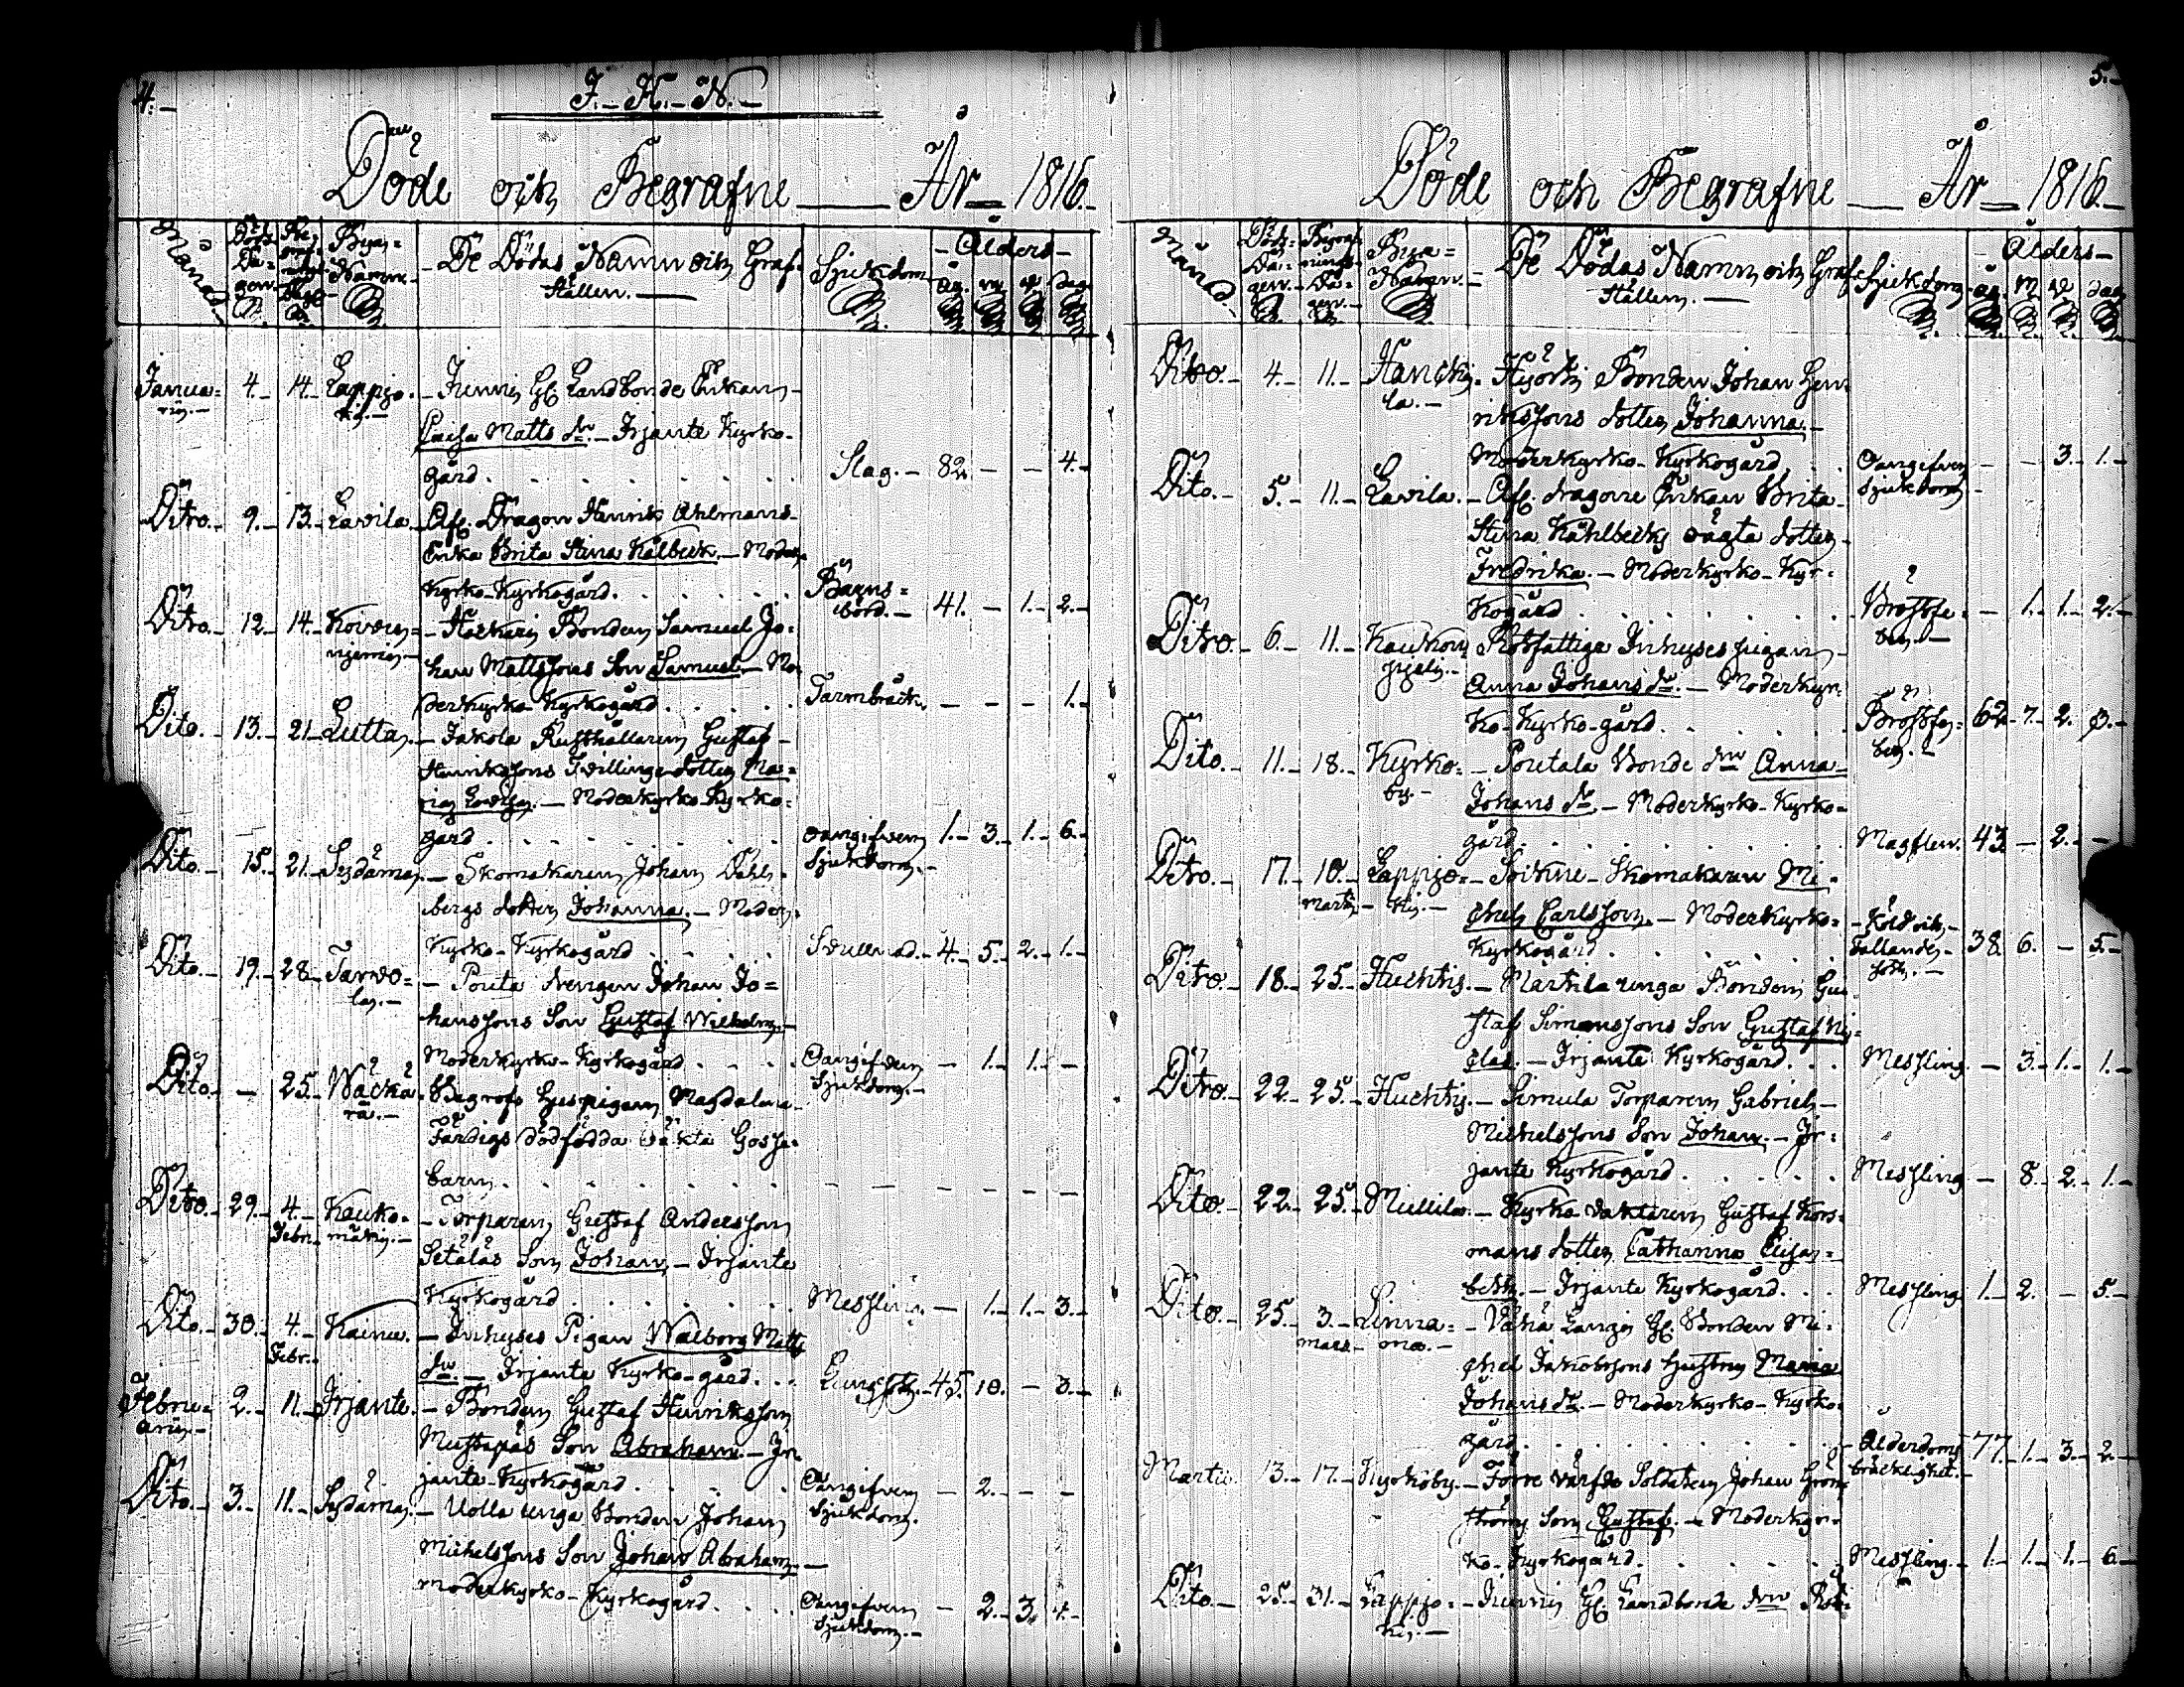 4.
J. - H. - N. -
Döde och Begrafne — År — 1816.
Månad. Döds Da= gen. Begrafnings Dag Byn= Namn. De Dödas Namn och Graf= Ställen. — Sjukdom Ålders
år. m. v. dag.
Janua= 4. 14. Lappjo= Junni Gl. Landbonde Enkan
rius. — ki. —
Caisa Matts dr. — Irjante Kyrko-
gård . . . . Slag. — 82 — — 4.
Dito. 9. 13. Lavila. Afl. Dragon Henrik Ahlmans
Enka Brita Stina Kålbeck. — Moder
Kyrko-Kyrkogård. . . . Barns=
börd. — 41. — 1. 2.
Dito. 12. 14. — Bonden Samuel Jo=
han Mattssons Son Samuel. — Mo=
derkyrko-Kyrkogård . . . Tarmbråck. — — — 1.
Dito. 13. 21. Lutta. — Jakola Rusthållaren Gustaf
Henrikssons Tvillinge dotter Ma=
ria Lovisa. — Moderkyrko-Kyrko=
gård . . . . oangifven 1. 3. 1. 6.
Sjukdom. —
Dito. 15. 21. Sydänma. — Skomakaren Johan Dahl=
bergs dotter Johanna. — Moder
Kyrko-Kyrkogård . . . Svullnad. 4. 5. 2. 1.
Dito. 19. 28. Tarvo=
la. — — Pouta drengen Johan Jo=
hanssons Son Gustaf Wilhelm. —
Moderkyrko-Kyrkogård . . . Oangifven — 1. 1. —
Sjukdom. —
Dito. — 25. Wäckä=
rä. — Begrofs Huspigan Magdalena
Färdigs dödfödda oäkta Gosse=
barn. . . . — — — — —
Dito. 29. 4. Kauko=
Febr. mäki. — — Torparen Gustaf Andersson
Setäläs Son Johan. — Irjante
Kyrkogård . . . Messling — 1. 1. 3.
Dito. 30. 4. Kainu. — Inhyses Pigan Walborg Matts
Febr.
dr. — Irjante Kyrko-gård. . . Lungsot. 45. 10. — 3.
Februa= 2. 11. Irjante. — Bonden Gustaf Henriksson
arius. —
Mustapäs Son Abraham. — Ir
jante-Kyrkogård . . . Oangifven — 2. — —
Sjukdom.
Dito. 3. 11. Sydänma. — Uolla unga Bonden Johan
Michelssons Son Johan Abraham. —
Moderkyrko-Kyrkogård . . . Oangifven — 2. 3. 4.
Sjukdom. —
5.
Döde och Begrafne — År — 1816.
Månad. Döds= Da= gen. Begraf= nings= Da= gen. Byn= Namn. De Dödas Namn och Graf= Ställen. — Sjukdom. Ålders
år. m. v. dag
Dito. 4. 11. Hanchi=
la. — Hjorki Bonden Johan Hen=
rikssons dotter Johanna. —
Moderkyrko-Kyrkogård . . Oangifven — — 3. 1.
Sjukdom —
Dito. 5. 11. Lavila. — Afl. dragone Enkan Brita
Stina Kåhlbecks oägta dotter
Fredrika. — Moderkyrko-Kyr=
kogård . . . Bröstfe=
ber. — — 1. 1. 2.
Dito. 6. 11. Rotfattiga Inhysespigan
Anna Johans dr. — Moderkyr=
ko-Kyrko-gård. . . Bröstfe=
ber. — 62. 7. 2. 3.
Dito. 11. 18. Kyrko=
by. — — Poutala Bonde dr Anna
Johans dr. — Moderkyrko-Kyrko=
gård. . . . Magplur. 43 — 2. —
Dito. 17. 10. Lappjo=
Martii ki. — — Soikne-Skomakaren Mi=
chel Carlsson. — Moderkyrko=
Kyrkogård . . . 38. 6. — 5.
Fallande=
sot. —
Dito. 18. 25. Huchtis. — Marttila unga Bonden Gu=
staf Simonssons Son Gustaf Ni=
clas. — Irjante Kyrkogård. . . Messling. — 3. 1. 1.
Dito. 22. 25. Huchtis. — Simula Torparen Gabriel
Michelssons Son Johan. — Ir=
jante Kyrkogård . . . Messling — 8. 2. 1.
Dito. 22. 25. Mullila. — Kyrko vaktaren Gustaf Kors=
mans dotter Catharina Elisa=
beth. — Irjante Kyrkogård. . . Messling 1. 2. — 5.
Dito. 25. 3. Linna=
mars. maa. — — Vähä Langi Gl. Bonden Mi=
chel Jakobssons Hustru Maria
Johans dr. — Moderkyrko-Kyrko=
gård . . . Ålderdoms 77. 1. 3. 2.
bräcklighet. —
Martii. 13. 17. Kyrkoby. — Förre värfde Soldaten Johan Grön=
ströms Son Gustaf. — Moderkyr=
ko-Kyrkogård. . . Messling. 1. 1. 1. 6.
Dito. 25. 31. Lappjo=
ki. — — Junni Gl. Landbonde